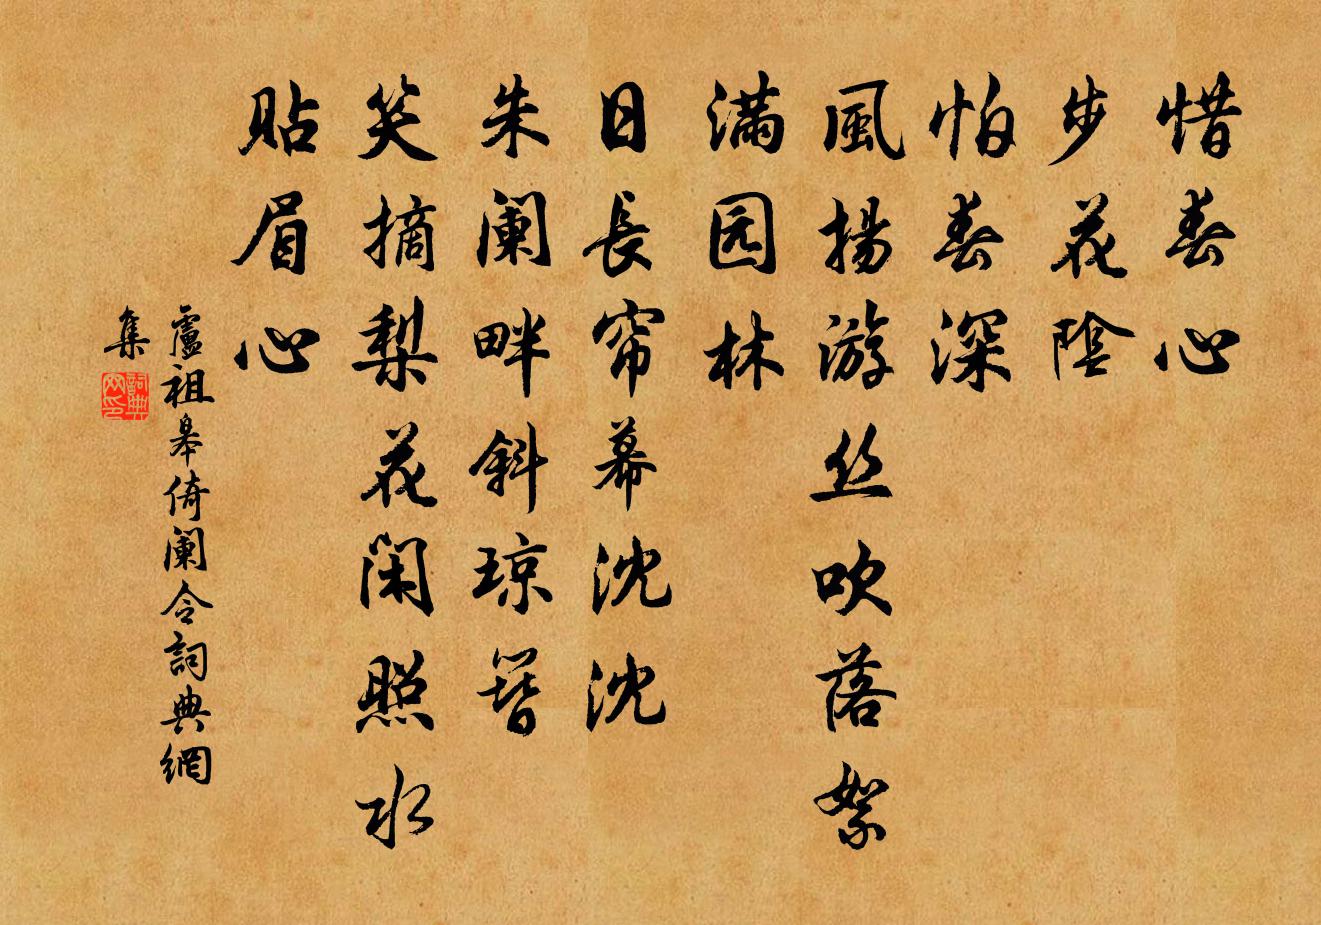 惜春心
步花陰
怕春深
風揚游丝吹落絮
满园林
日長帘幕沈沈
朱阑畔斜琼簪
笑摘梨花闲照水
贴眉心
盧祖皋倚阑令詞典網
集
詞典网印